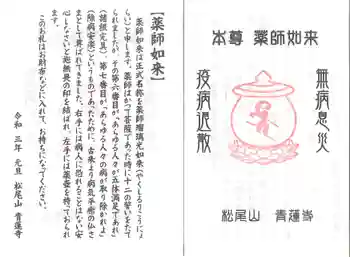 本尊 薬師如来
無病息災
疫病退散
松尾山 青蓮寺
【薬師如来】
薬師如来は正式名称を薬師瑠璃光如来(やくしるりこうにょ
らい)と申します。薬師はかつて菩薩であった時に十二の誓いをたて
られましたが、その第六番目が「あらゆる人々が五体満足であれ」
(諸根完具)、第七番目が、「あらゆる人々の病が取り除かれよ」
(除病安楽)というものであったために、古来より病気平癒の仏さ
まとして尊ばれてきました。右手には病人に恐れることはない安
心しなさいと施無畏の印を結ばれ、左手には薬壺を持っておられ
ます。
このお札はお財布などに入れて、お持ちになってください。
令和 三年 元旦 松尾山 青蓮寺